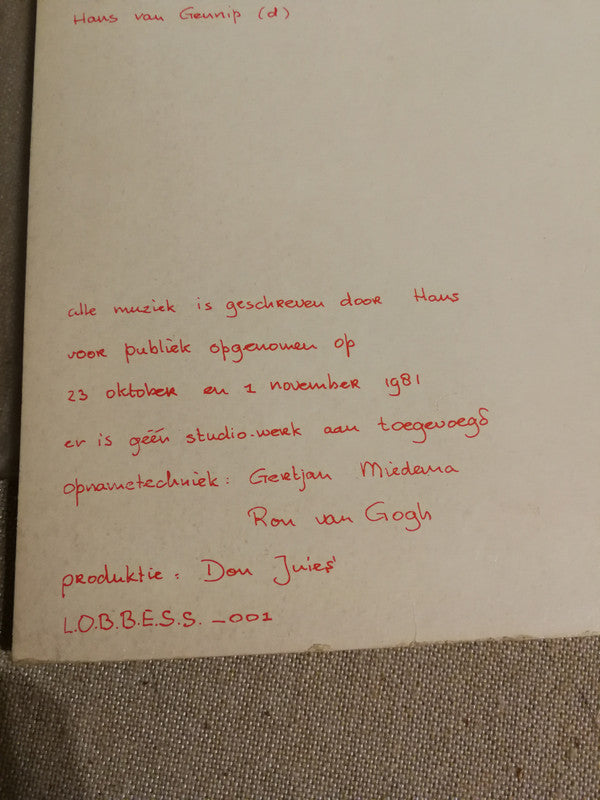 Hans van Gennip (d)
alle muziek is geschreven door Hans
voor publiek opgenomen op
23 oktober en 1 november 1981
er is géén studio-werk aan toegevoegd
opnametechniek: Gertjan Miedema
Ron van Gogh
produktie: Don
L.O.B.B.E.S.S. -001